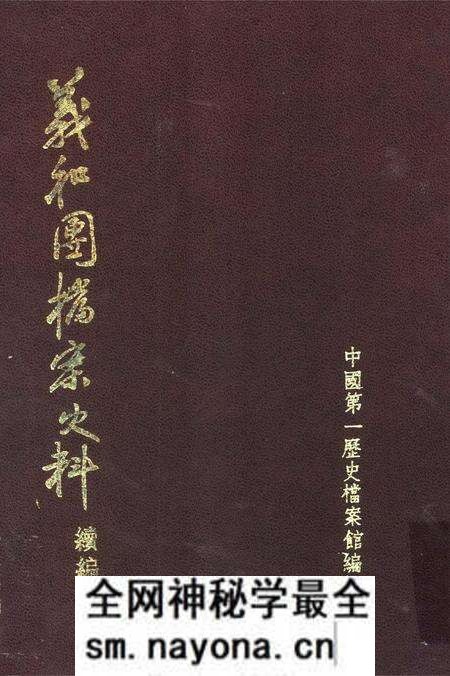 義和團檔案史料
續編
中國第一歷史檔案館編
全网神秘学最全
sm.nayona.cn